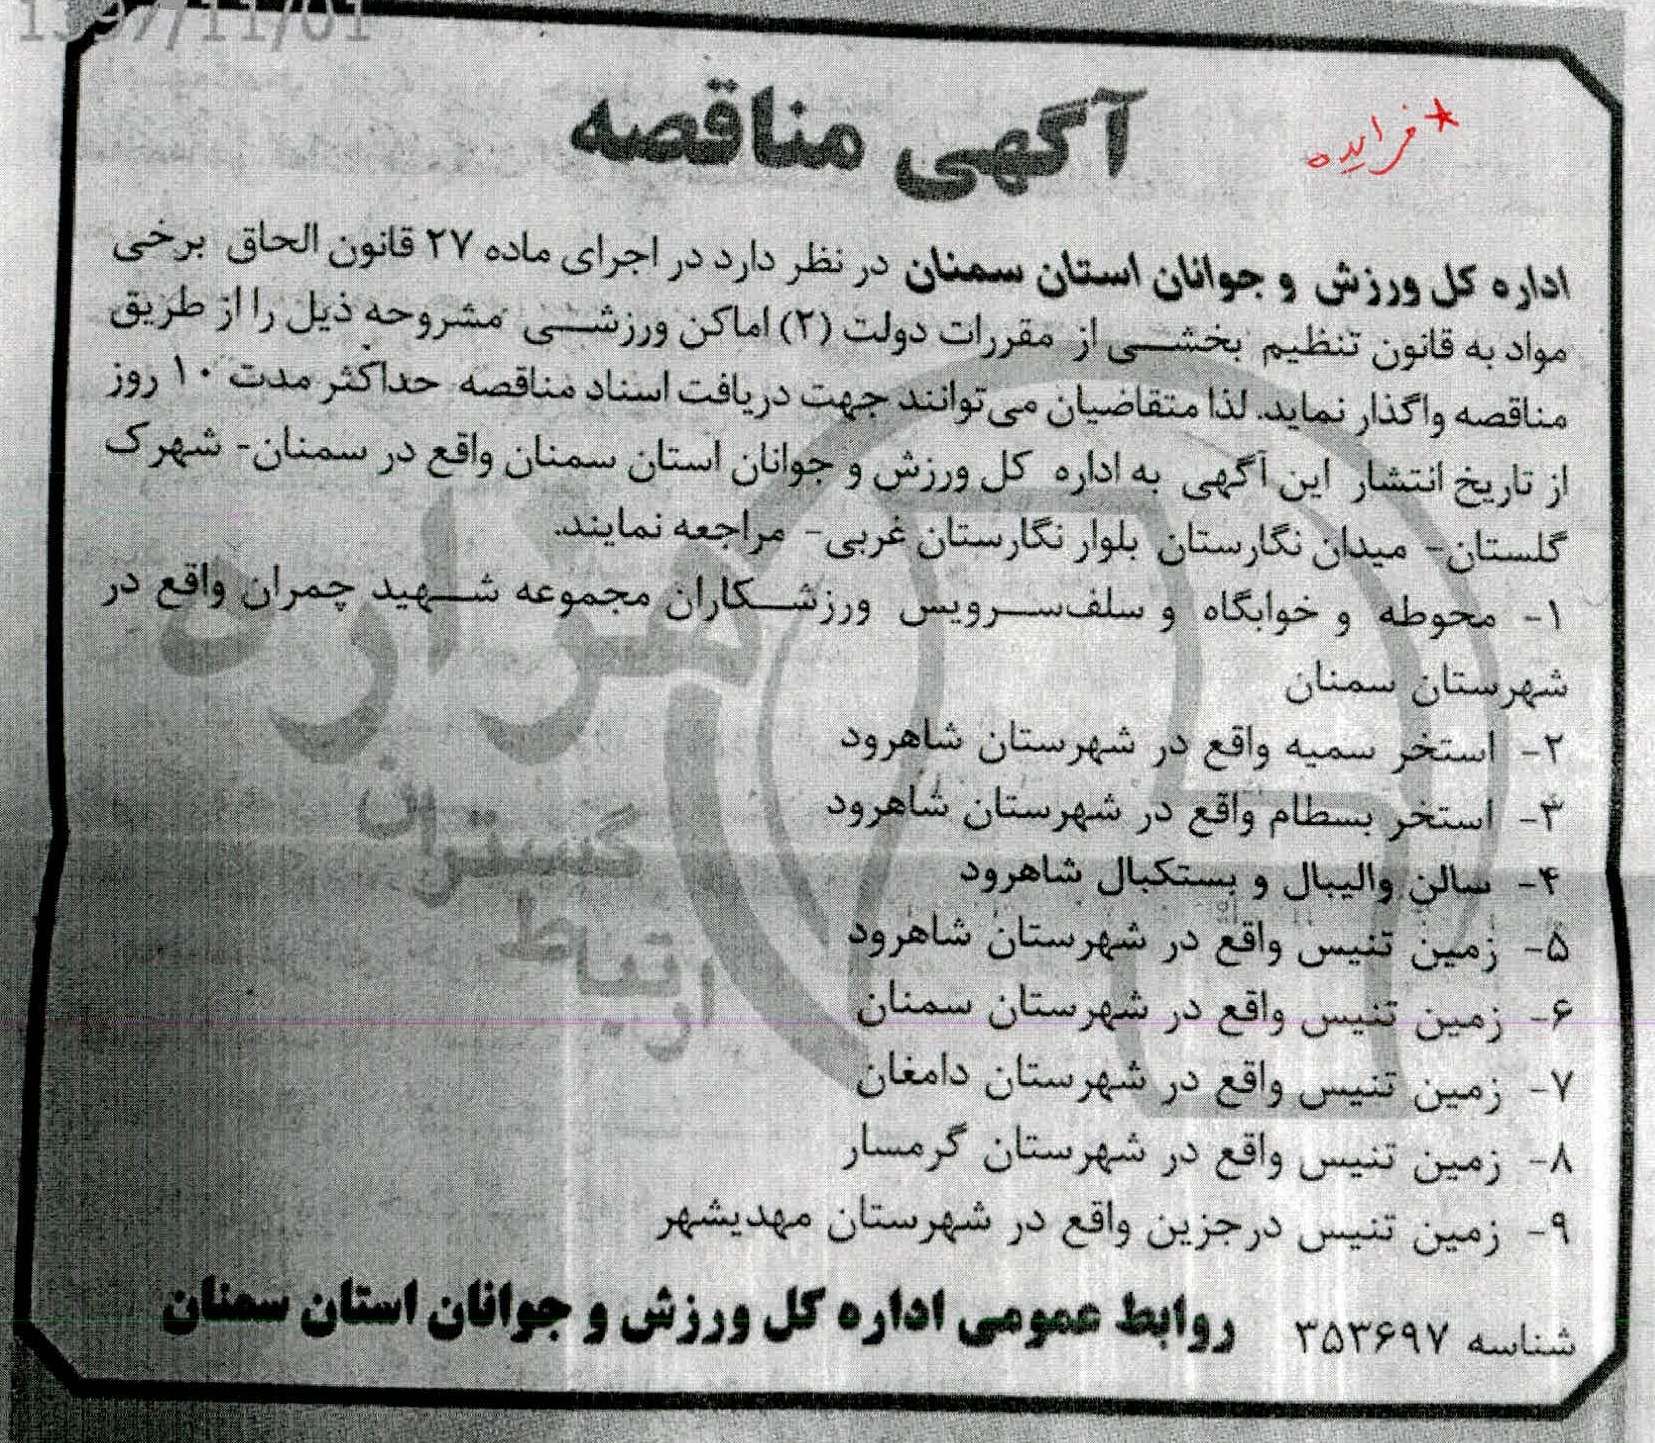 1397/11/01
آگهی مناقصه
* مزایده
اداره کل ورزش و جوانان استان سمنان در نظر دارد در اجرای ماده ۲۷ قانون الحاق برخی
مواد به قانون تنظیم بخشی از مقررات دولت (۲) اماکن ورزشی مشروحه ذیل را از طریق
مناقصه واگذار نماید. لذا متقاضیان می‌توانند جهت دریافت اسناد مناقصه حداکثر مدت ۱۰ روز
از تاریخ انتشار این آگهی به اداره کل ورزش و جوانان استان سمنان واقع در سمنان- شهرک
گلستان- میدان نگارستان بلوار نگارستان غربی- مراجعه نمایند.
۱- محوطه و خوابگاه و سلف‌سرویس ورزشکاران مجموعه شهید چمران واقع در
شهرستان سمنان
۲- استخر سمیه واقع در شهرستان شاهرود
۳- استخر بسطام واقع در شهرستان شاهرود
۴- سالن والیبال و بستکبال شاهرود
۵- زمین تنیس واقع در شهرستان شاهرود
۶- زمین تنیس واقع در شهرستان سمنان
۷- زمین تنیس واقع در شهرستان دامغان
۸- زمین تنیس واقع در شهرستان گرمسار
۹- زمین تنیس درجزین واقع در شهرستان مهدیشهر
شناسه ۳۵۳۶۹۷ روابط عمومی اداره کل ورزش و جوانان استان سمنان
هزاره
گستران
ارتباط